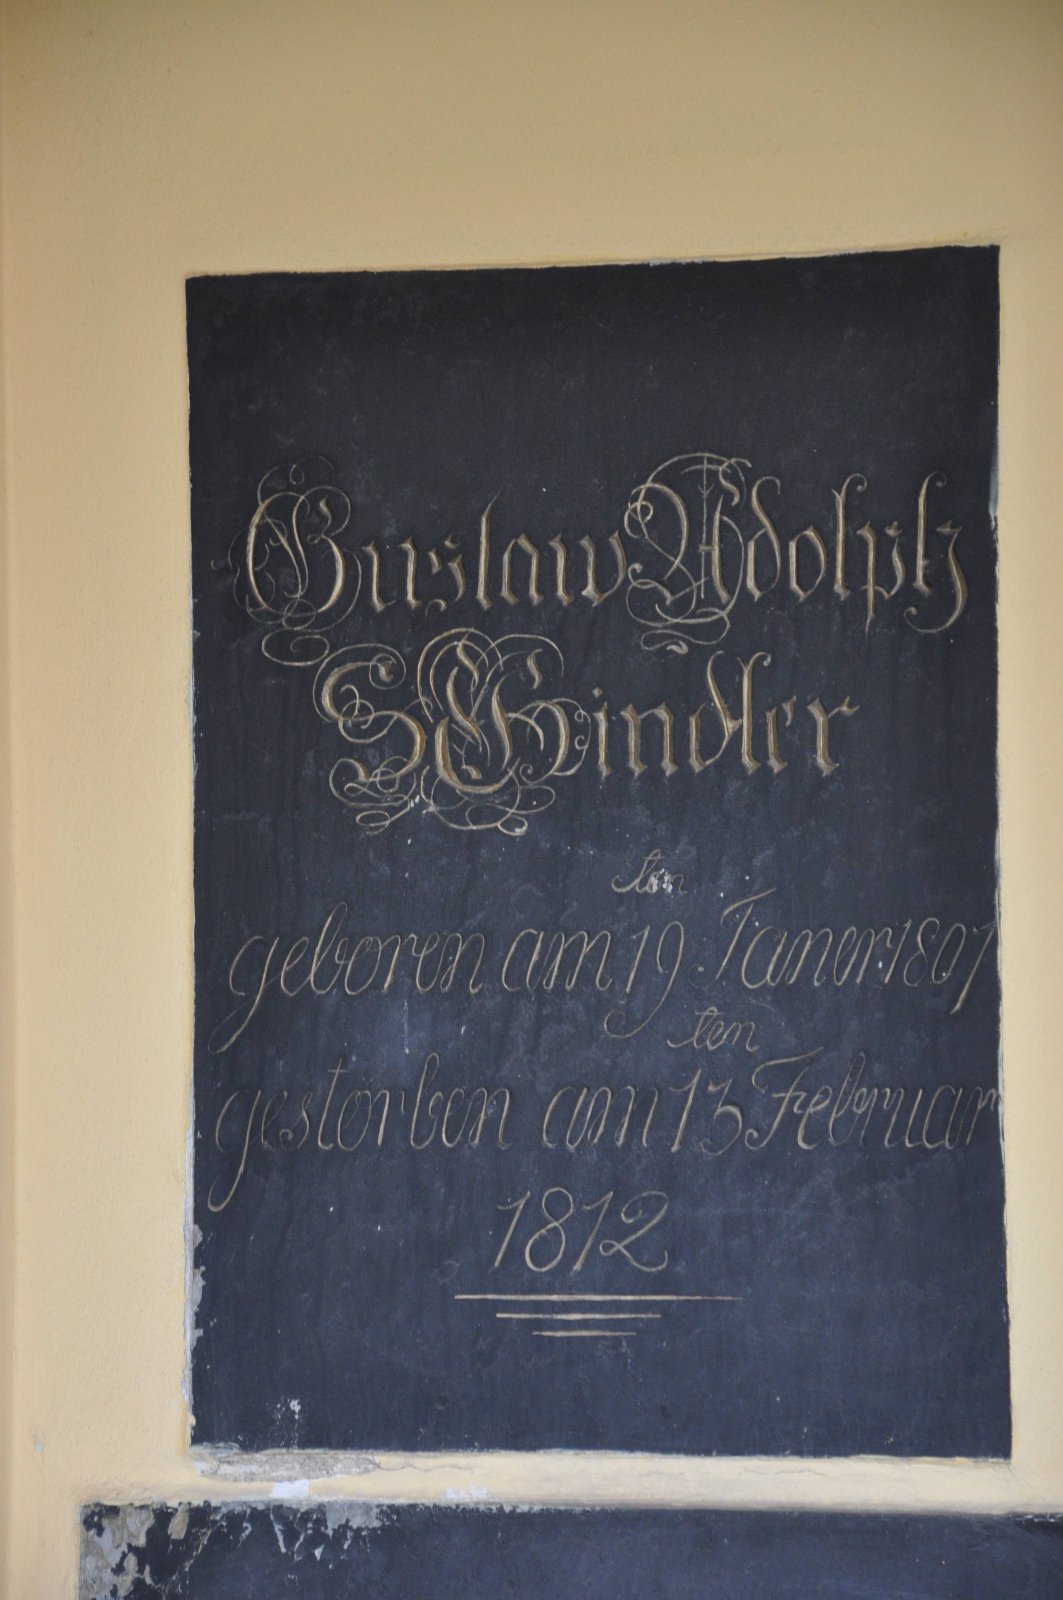 Gustaw Adolph
SCHindler
ten
geboren am 19 Janer 1807
ten
gestorben am 13 Februar
1812